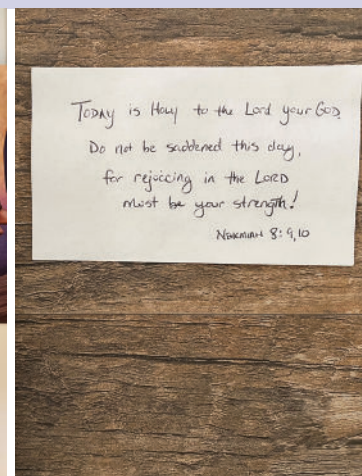 Today is Holy to the Lord your God.
Do not be saddened this day,
for rejoicing in the LORD
must be your strength!
Nehemiah 8:9,10